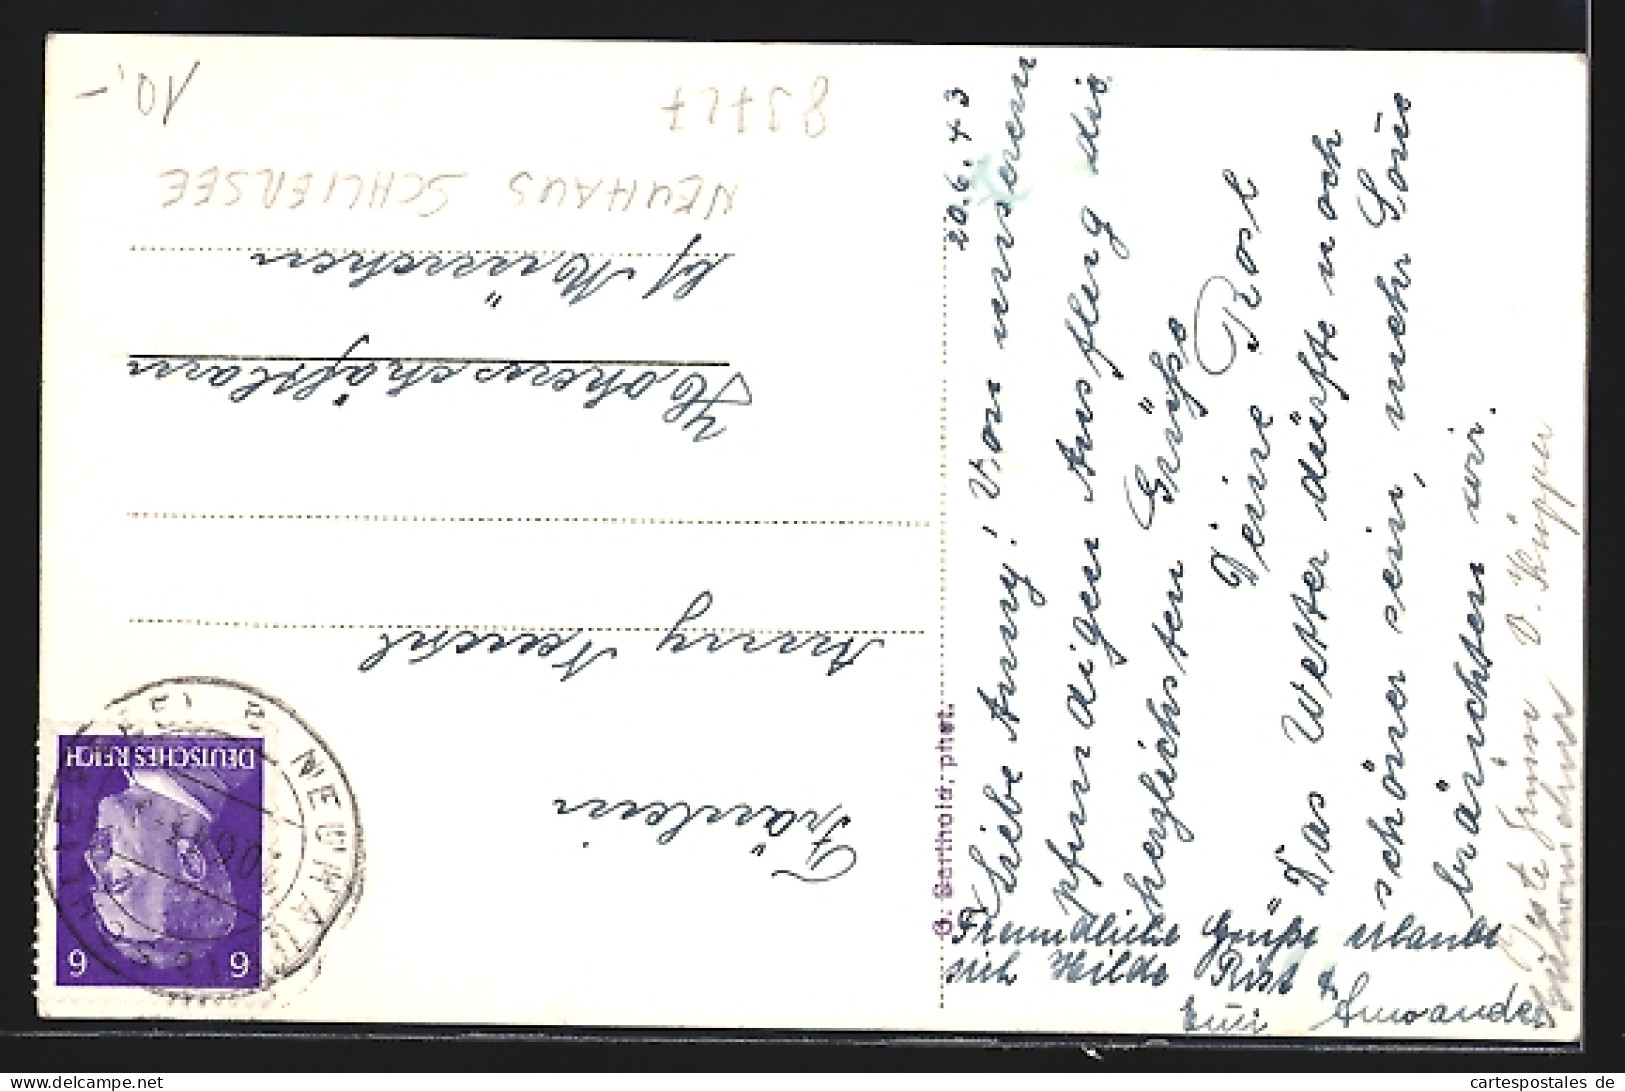 20.6.43
Liebe Anny! Von unserem
pfundigen Ausflug die
herzlichsten Grüße
Deine Rosl
Das Wetter dürfte noch
schöner sein, mehr
bräuchten wir.
Freundliche Grüße erlaubt
sich Hilde Rist &
Beste Grüsse
G. Berthold, phot.
Fräulein
Anny
Hohenschäftlarn
b/ München
NEUHAUS SCHLIERSEE
83727
10,-
DEUTSCHES REICH
6 6
NEUHAUS
cartespostales de